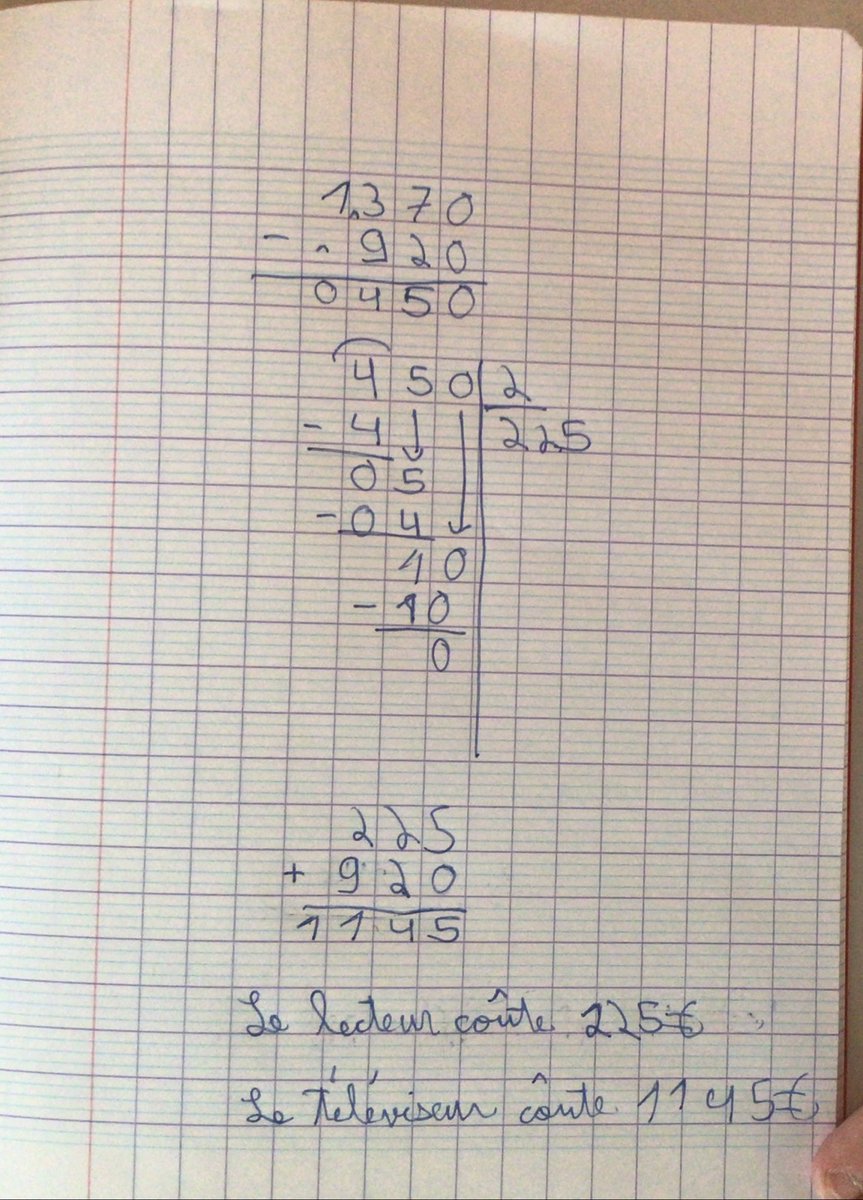 1370
- 920
0450
450 2
- 4 225
05
- 04
10
- 10
0
225
+ 920
1145
Le lecteur coûte 225€
Le Téléviseur côute 1145€